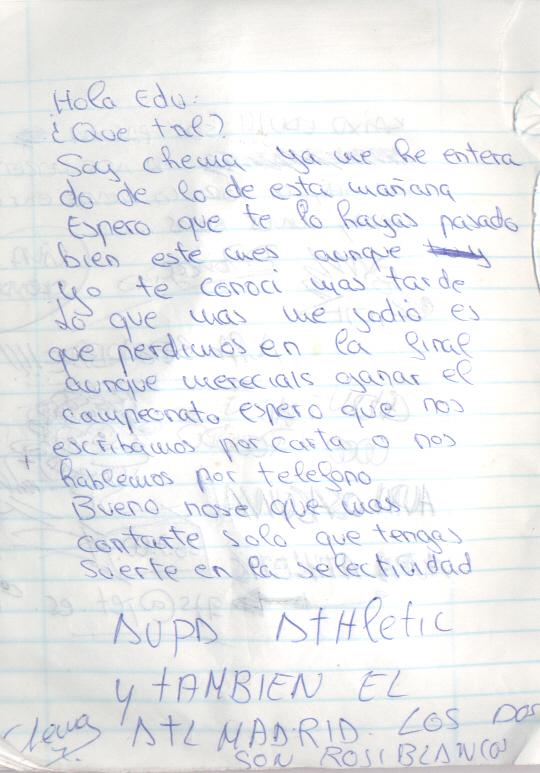 Hola Edu:
¿Que tal?
Soy chema ya me he entera
do de lo de esta mañana
Espero que te lo hayas pasado
bien este mes aunque
yo te conoci mas tarde
Lo que mas me jodio es
que perdimos en la final
aunque mereciais ganar el
campeonato espero que nos
escribamos por carta o nos
hablemos por telefono
Bueno nose que mas
contarte solo que tengas
suerte en la selectividad
AUPA AtHletic
y tAMBIEN EL
Atl MADRID. LOS DOS
SON ROSIBLANCOS
Chema